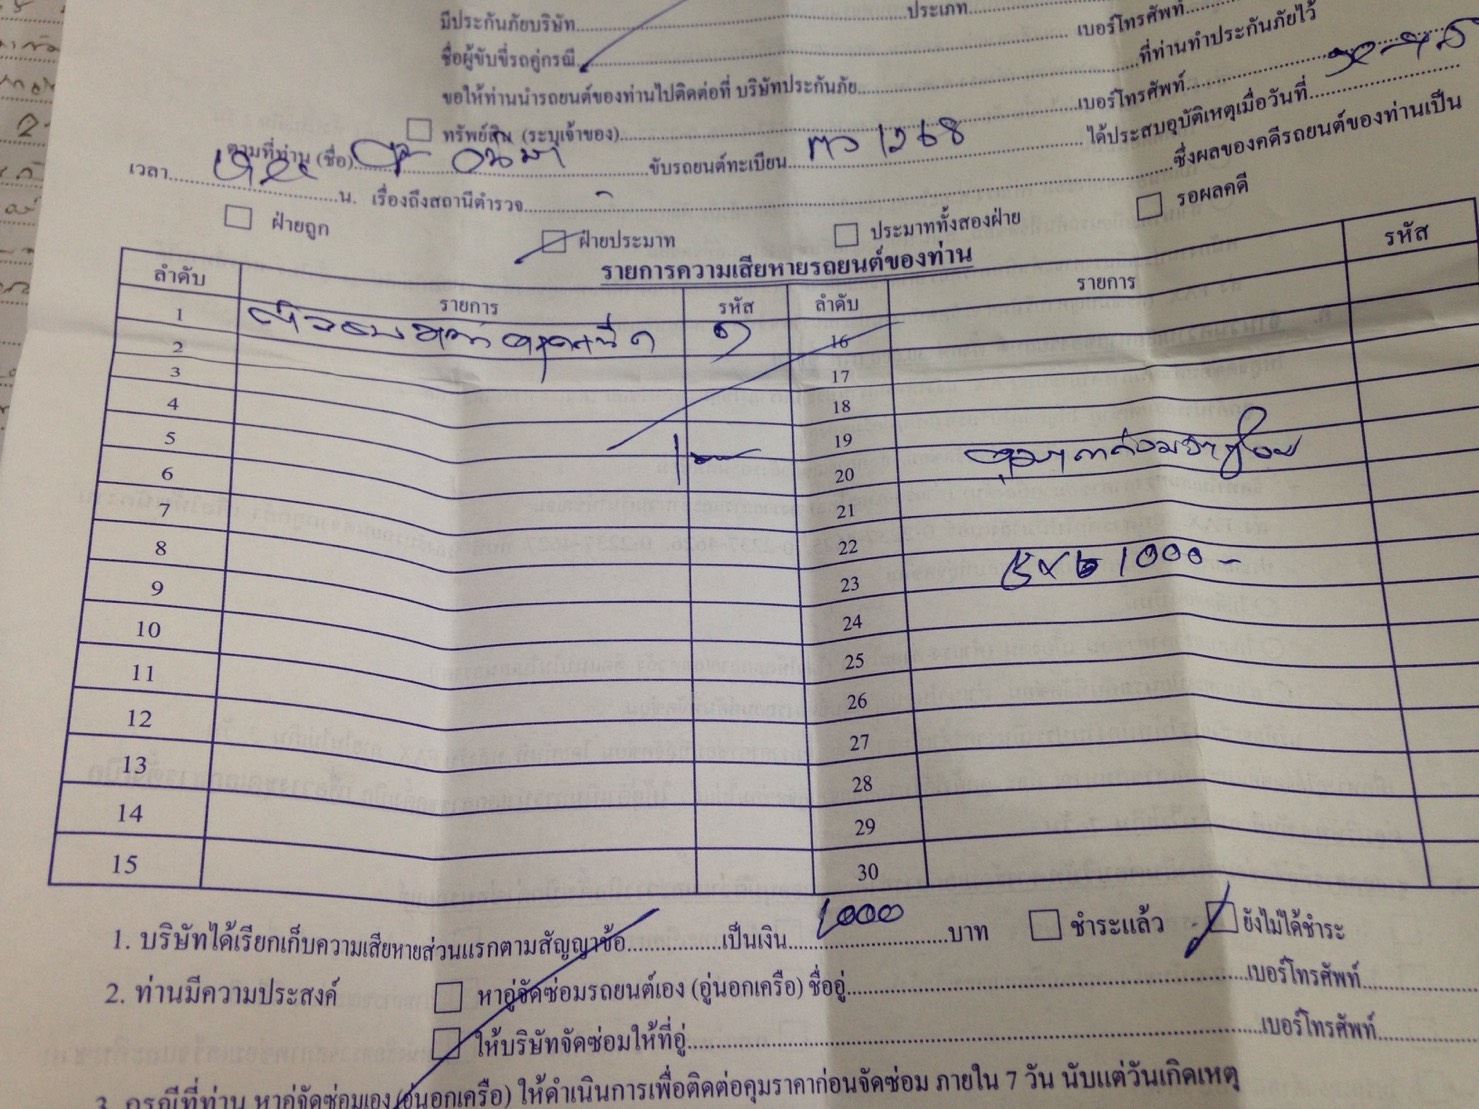 มีประกันภัยบริษัท ประเภท เบอร์โทรศัพท์
ชื่อผู้ขับขี่รถคู่กรณี ที่ท่านทำประกันภัยไว้
ขอให้ท่านนำรถยนต์ของท่านไปติดต่อที่ บริษัทประกันภัย เบอร์โทรศัพท์
ทรัพย์สิน (ระบุเจ้าของ) ได้ประสบอุบัติเหตุเมื่อวันที่
ตามที่ท่าน (ชื่อ) ขับรถยนต์ทะเบียน 1268 ซึ่งผลของคดีรถยนต์ของท่านเป็น
เวลา น. เรื่องถึงสถานีตำรวจ
ฝ่ายถูก ฝ่ายประมาท ประมาททั้งสองฝ่าย รอผลคดี
รายการความเสียหายรถยนต์ของท่าน
ลำดับ รายการ รหัส ลำดับ รายการ รหัส
1 16
2 17
3 18
4 19
5 20
6 21
7 22
8 23 1000 -
9 24
10 25
11 26
12 27
13 28
14 29
15 30
1. บริษัทได้เรียกเก็บความเสียหายส่วนแรกตามสัญญาข้อ เป็นเงิน 1000 บาท ชำระแล้ว ยังไม่ได้ชำระ
2. ท่านมีความประสงค์ หาอู่จัดซ่อมรถยนต์เอง (อู่นอกเครือ) ชื่ออู่ เบอร์โทรศัพท์
ให้บริษัทจัดซ่อมให้ที่อู่ เบอร์โทรศัพท์
3. กรณีที่ท่าน หาอู่จัดซ่อมเอง (อู่นอกเครือ) ให้ดำเนินการเพื่อติดต่อคุมราคาก่อนจัดซ่อม ภายใน 7 วัน นับแต่วันเกิดเหตุ